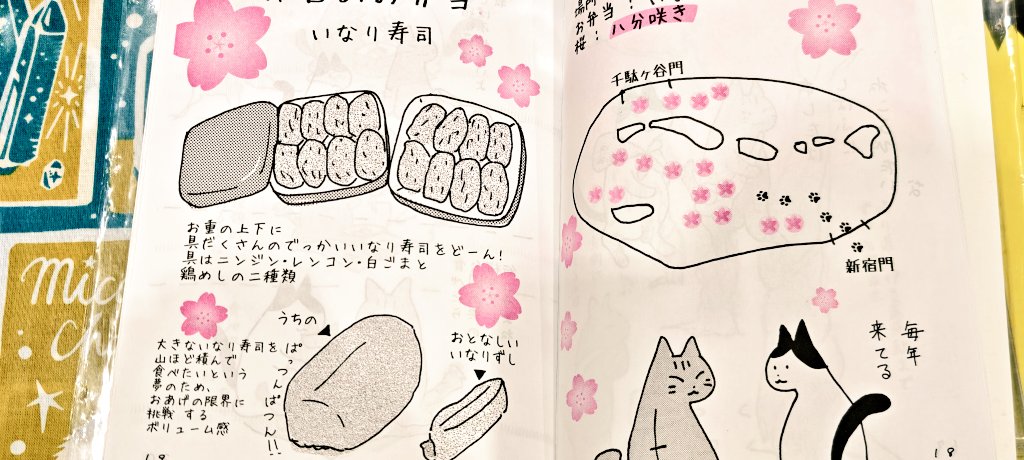 弁当
いなり寿司
お重の上下に
具だくさんのでっかいいなり寿司をどーん!
具はニンジン・レンコン・白ごまと
鶏めしの二種類
うちの
ぱっつんぱつん!!
大きないなり寿司を
山ほど積んで
食べたいという
夢のため、
おあげの限界に
挑戦する
ボリューム感
おとなしい
いなりずし
場所
お弁当:
桜:八分咲き
千駄ヶ谷門
新宿門
毎年
来てる
18
Mic
Ch